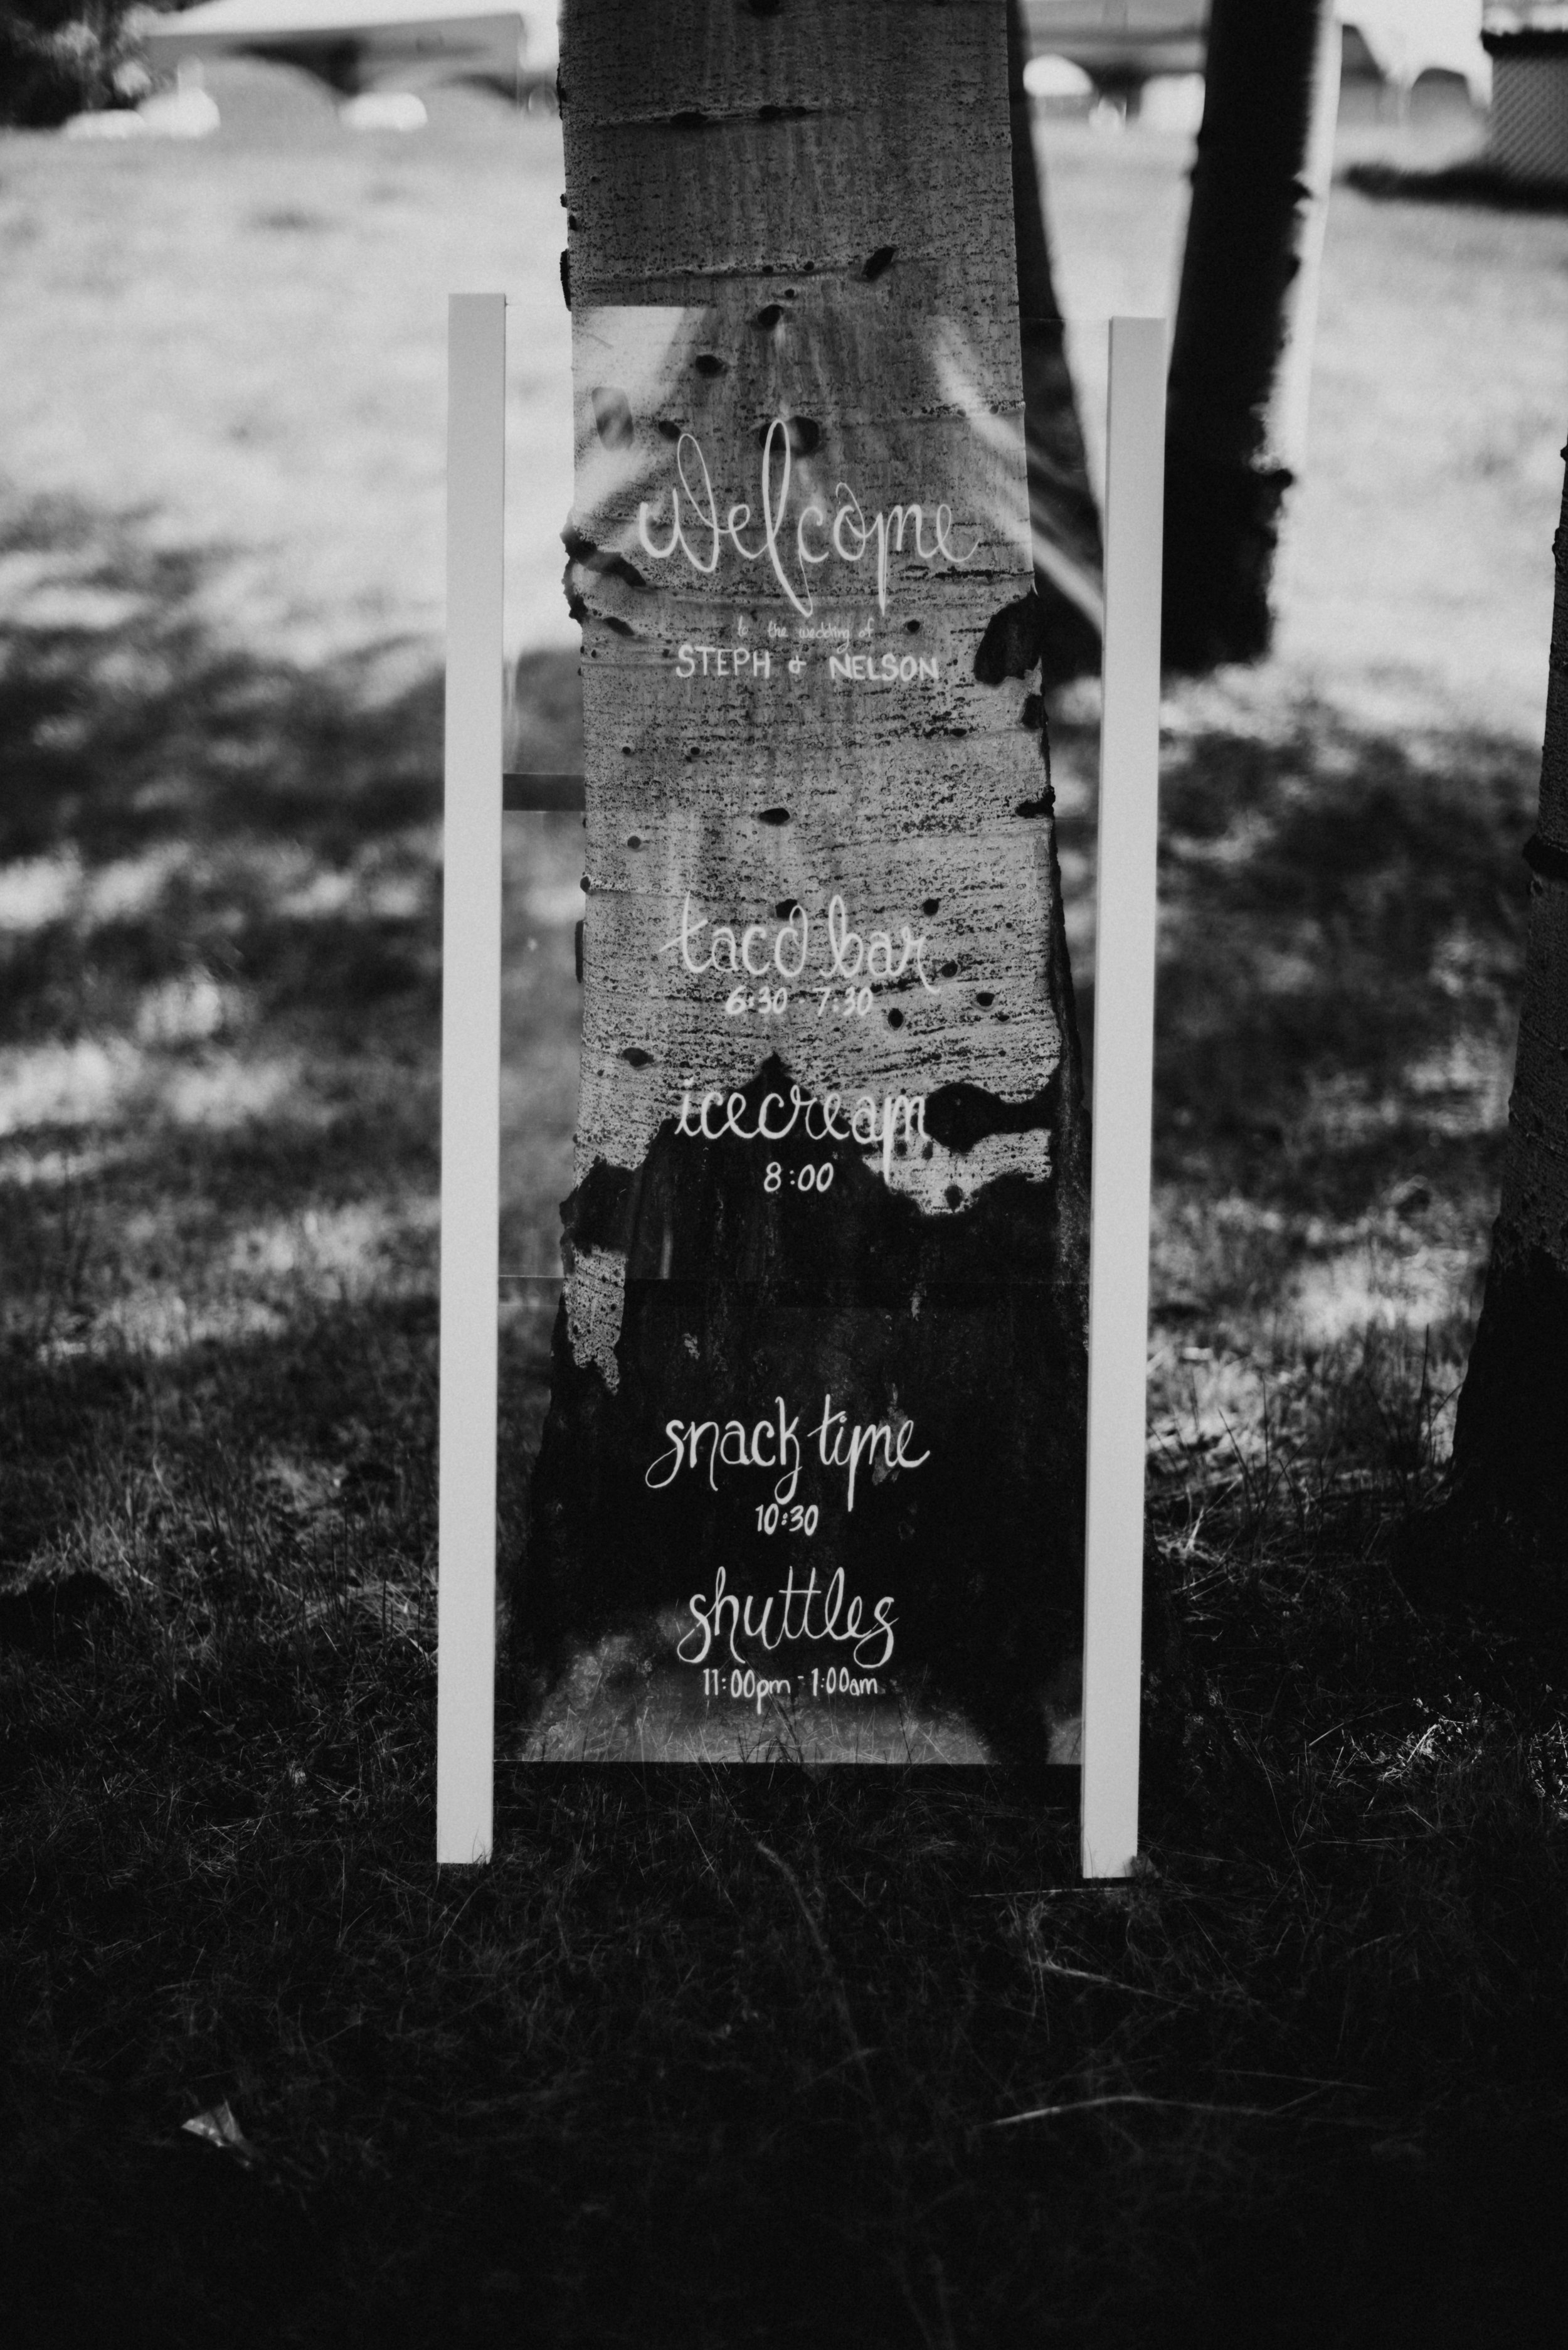 welcome
to the wedding of
STEPH & NELSON
taco bar
6:30 - 7:30
ice cream
8:00
snack time
10:30
shuttles
11:00pm - 1:00am